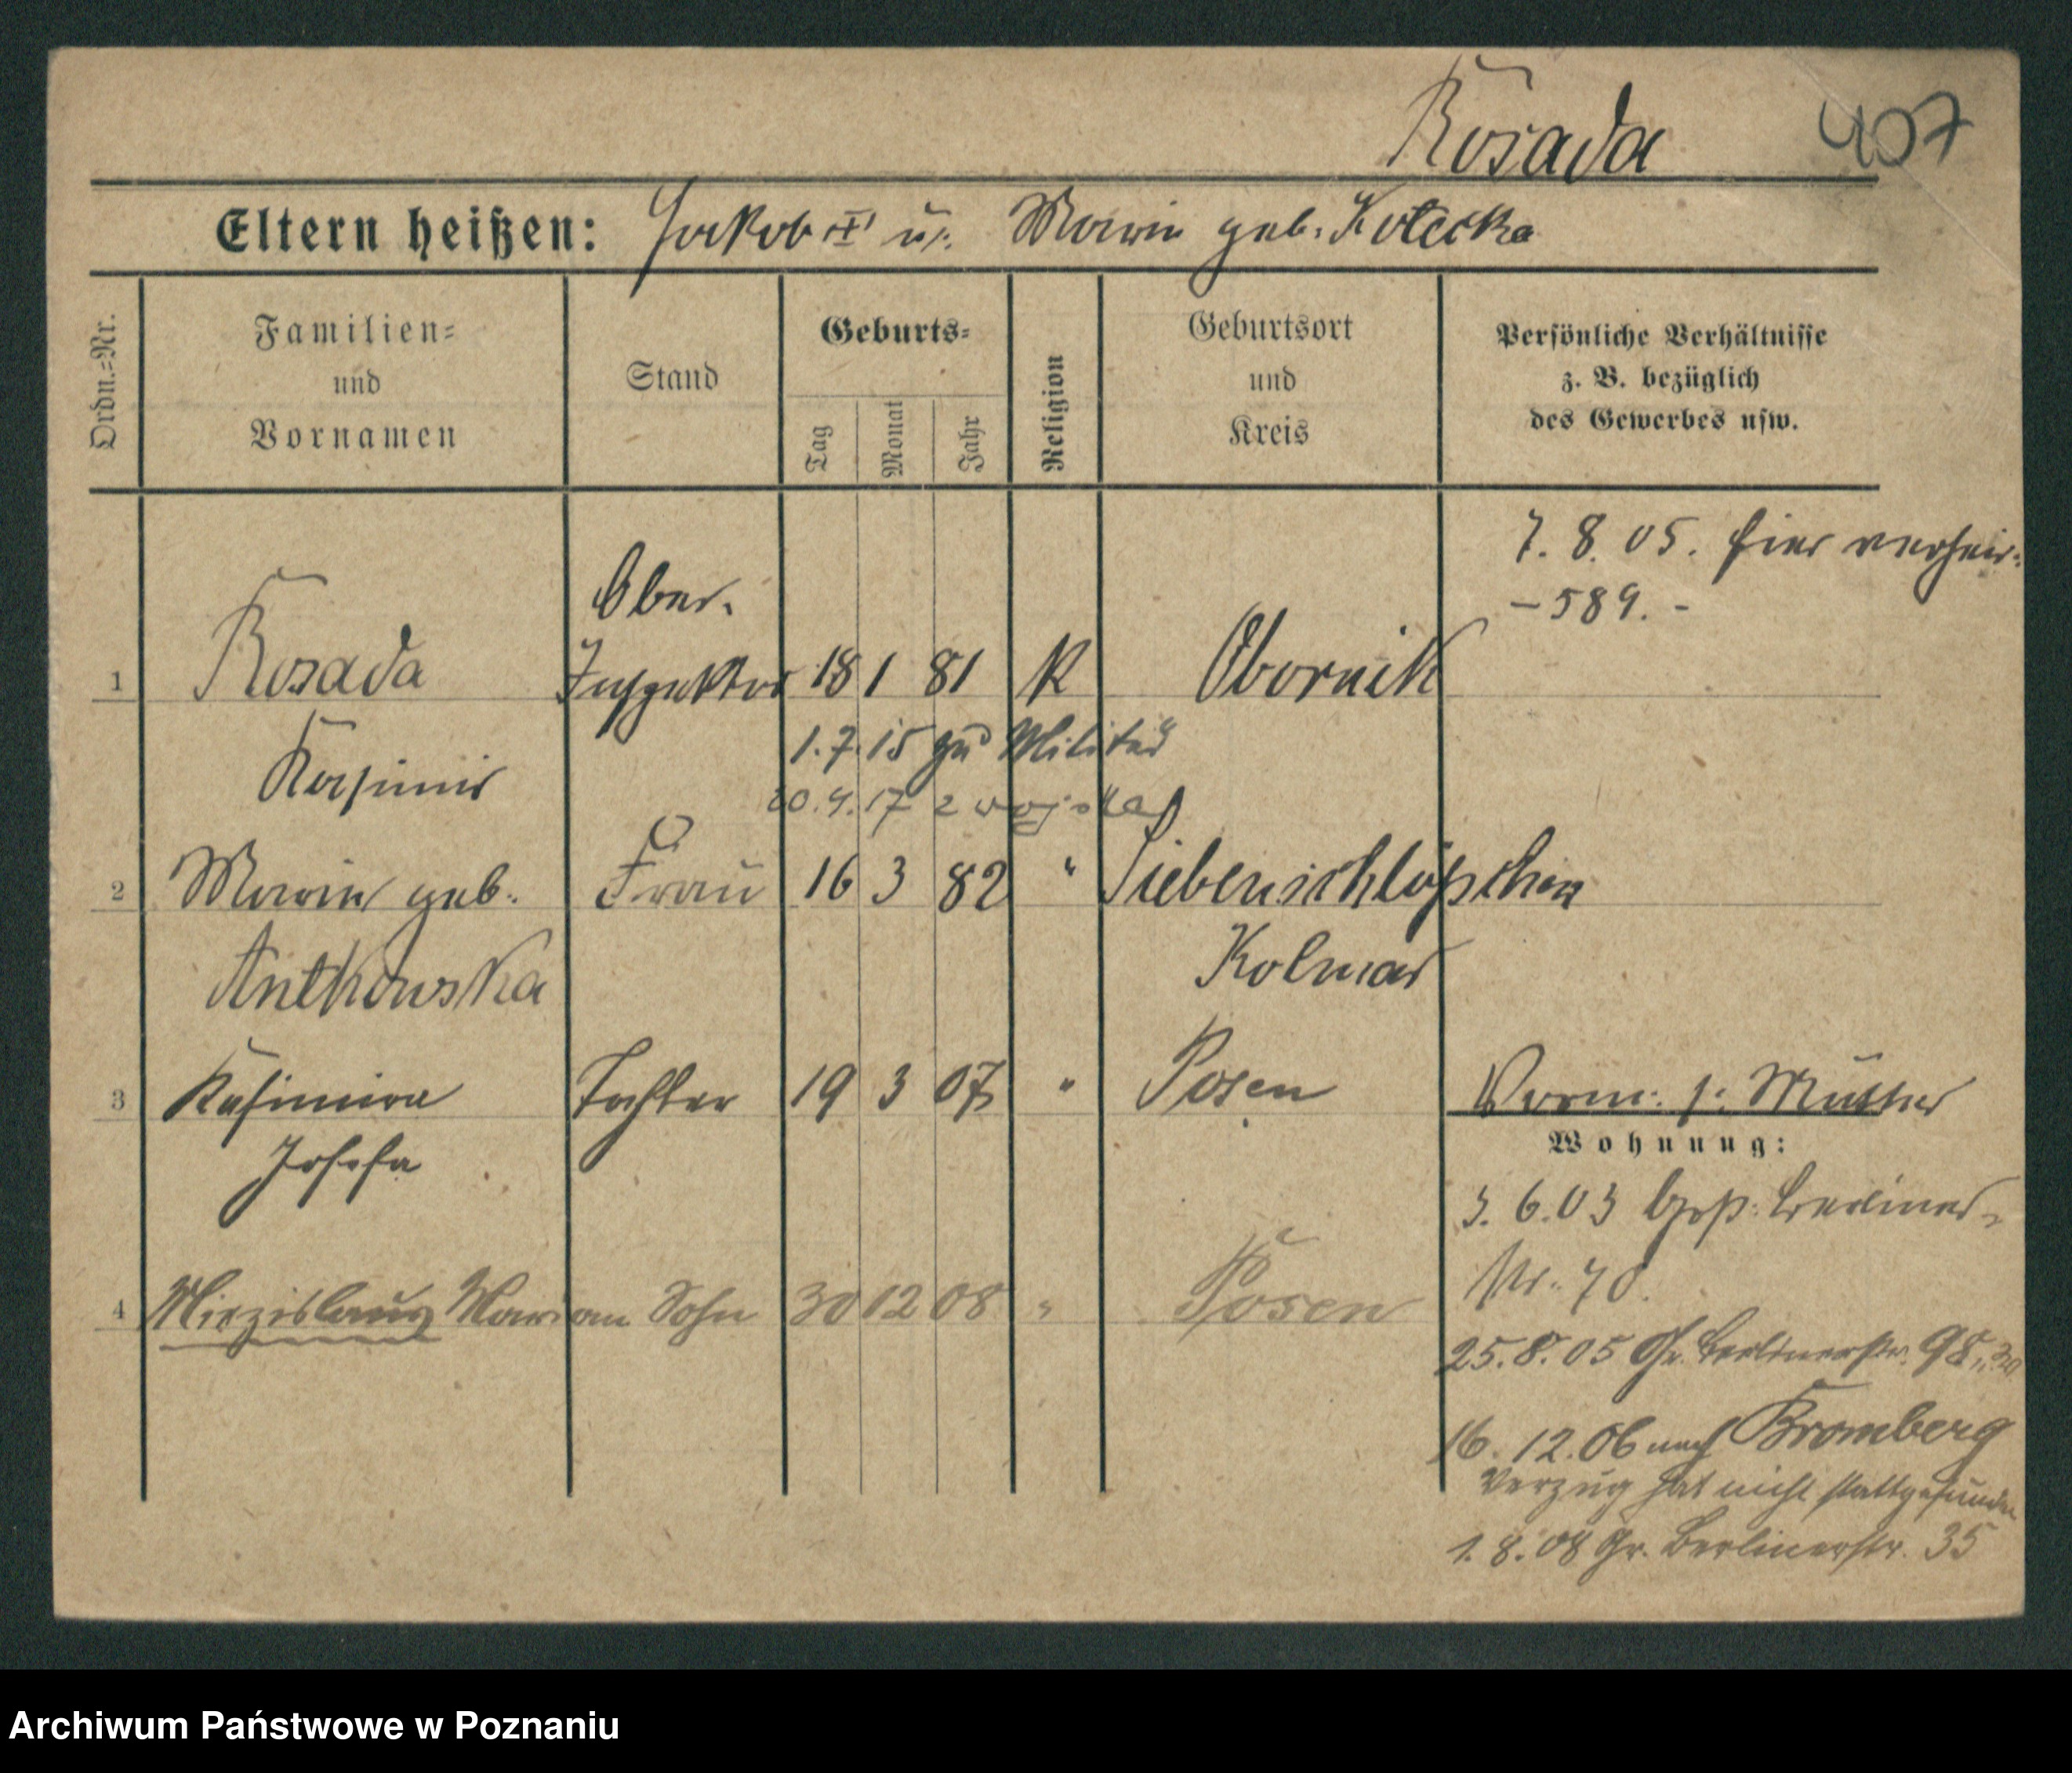 Rosada 407
Eltern heißen: Jakob II u. Maria geb. Kotecka
Ordn.=Nr.
Familien=
und
Vornamen
Stand
Geburts=
Tag
Monat
Jahr
Religion
Geburtsort
und
Kreis
Persönliche Verhältnisse
z. B. bezüglich
des Gewerbes usw.
7. 8. 05. hier verheir:
- 589. -
1 Rosada Ober- Inspektor 18 1 81 K Obornik
Kasimir
1.7.15 zum Militär
4.17 z wojska
2 Maria geb. Frau 16 3 82 " Liebenschlößchen
Antkowska Kolmar
3 Kasimira Tochter 19 3 07 " Posen
Josefa
Vorm: s. Mutter
Wohnung:
3. 6. 03 Groß: Berliner-
Nr. 70.
4 Miezislaus Marian Sohn 30 12 08 " Posen
25. 8. 05 Gr. Berlinerstr. 98
16. 12. 06 nach Bromberg
Verzug hat nicht stattgefunden
1. 8. 08 Gr. Berlinerstr. 35
Archiwum Państwowe w Poznaniu